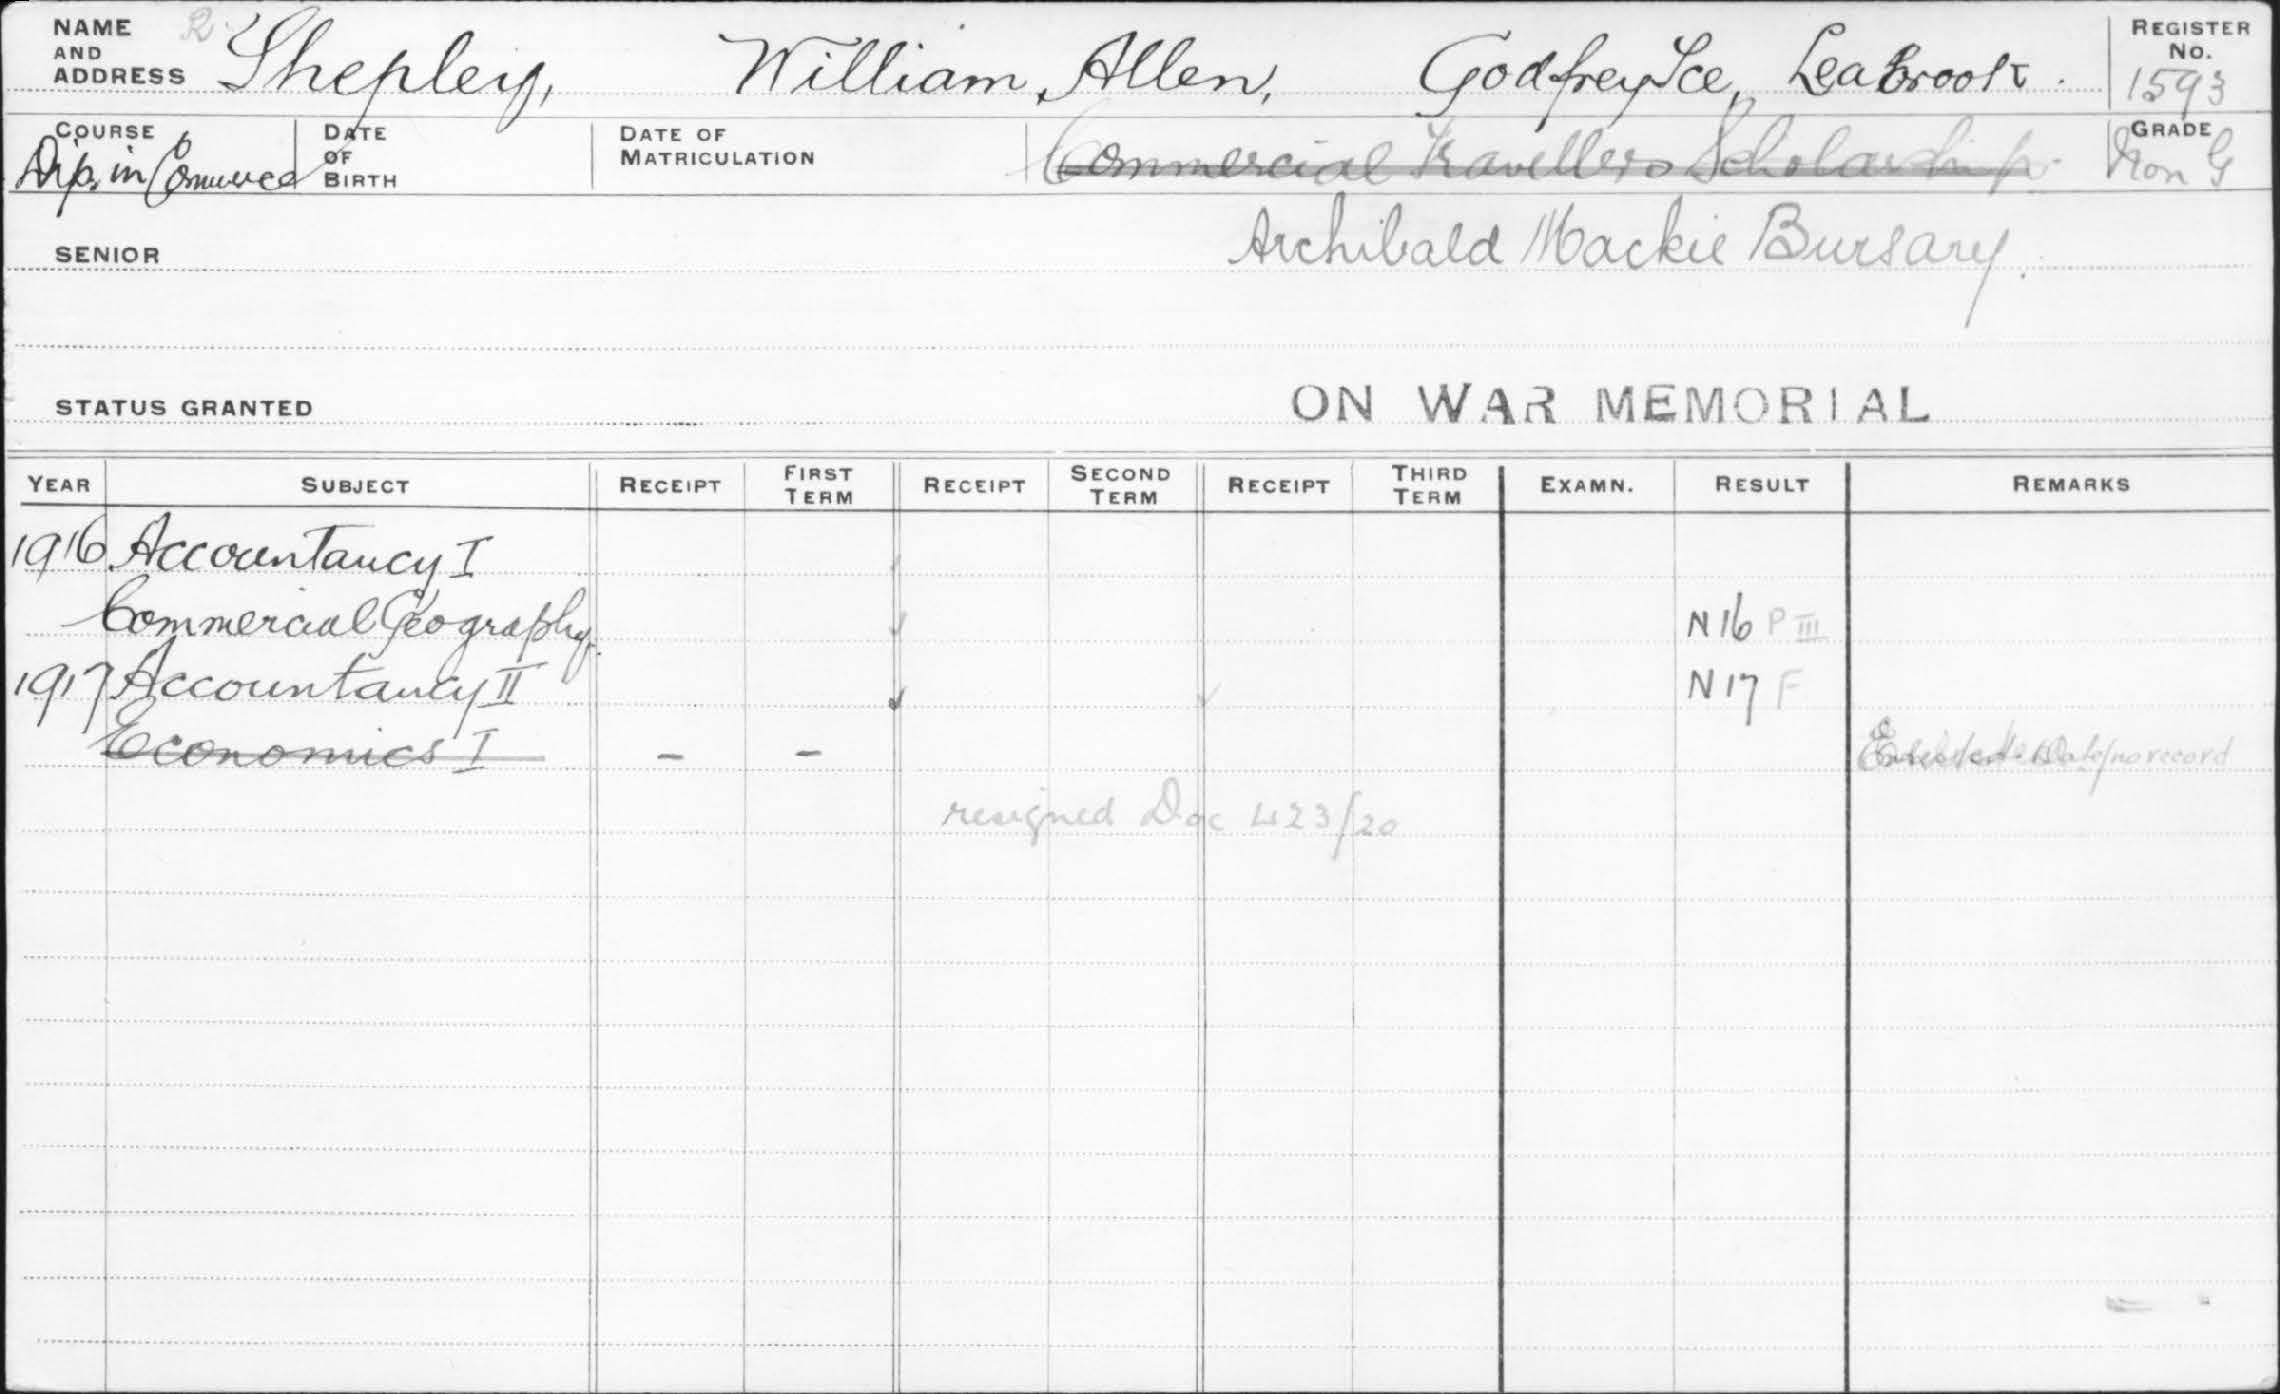 NAME AND ADDRESS Shepley, William Allen, Godfrey Tce, Leabrook. REGISTER No. 1593
COURSE Dip. in Commerce DATE OF BIRTH DATE OF MATRICULATION Commercial Travellers Scholarship. GRADE Non G
SENIOR Archibald Mackie Bursary.
STATUS GRANTED ON WAR MEMORIAL
YEAR SUBJECT RECEIPT FIRST TERM RECEIPT SECOND TERM RECEIPT THIRD TERM EXAMN. RESULT REMARKS
1916 Accountancy I
Commercial Geography. N 16 P III
1917 Accountancy II N 17 F
Economics I – – no record
resigned Doc 423/20